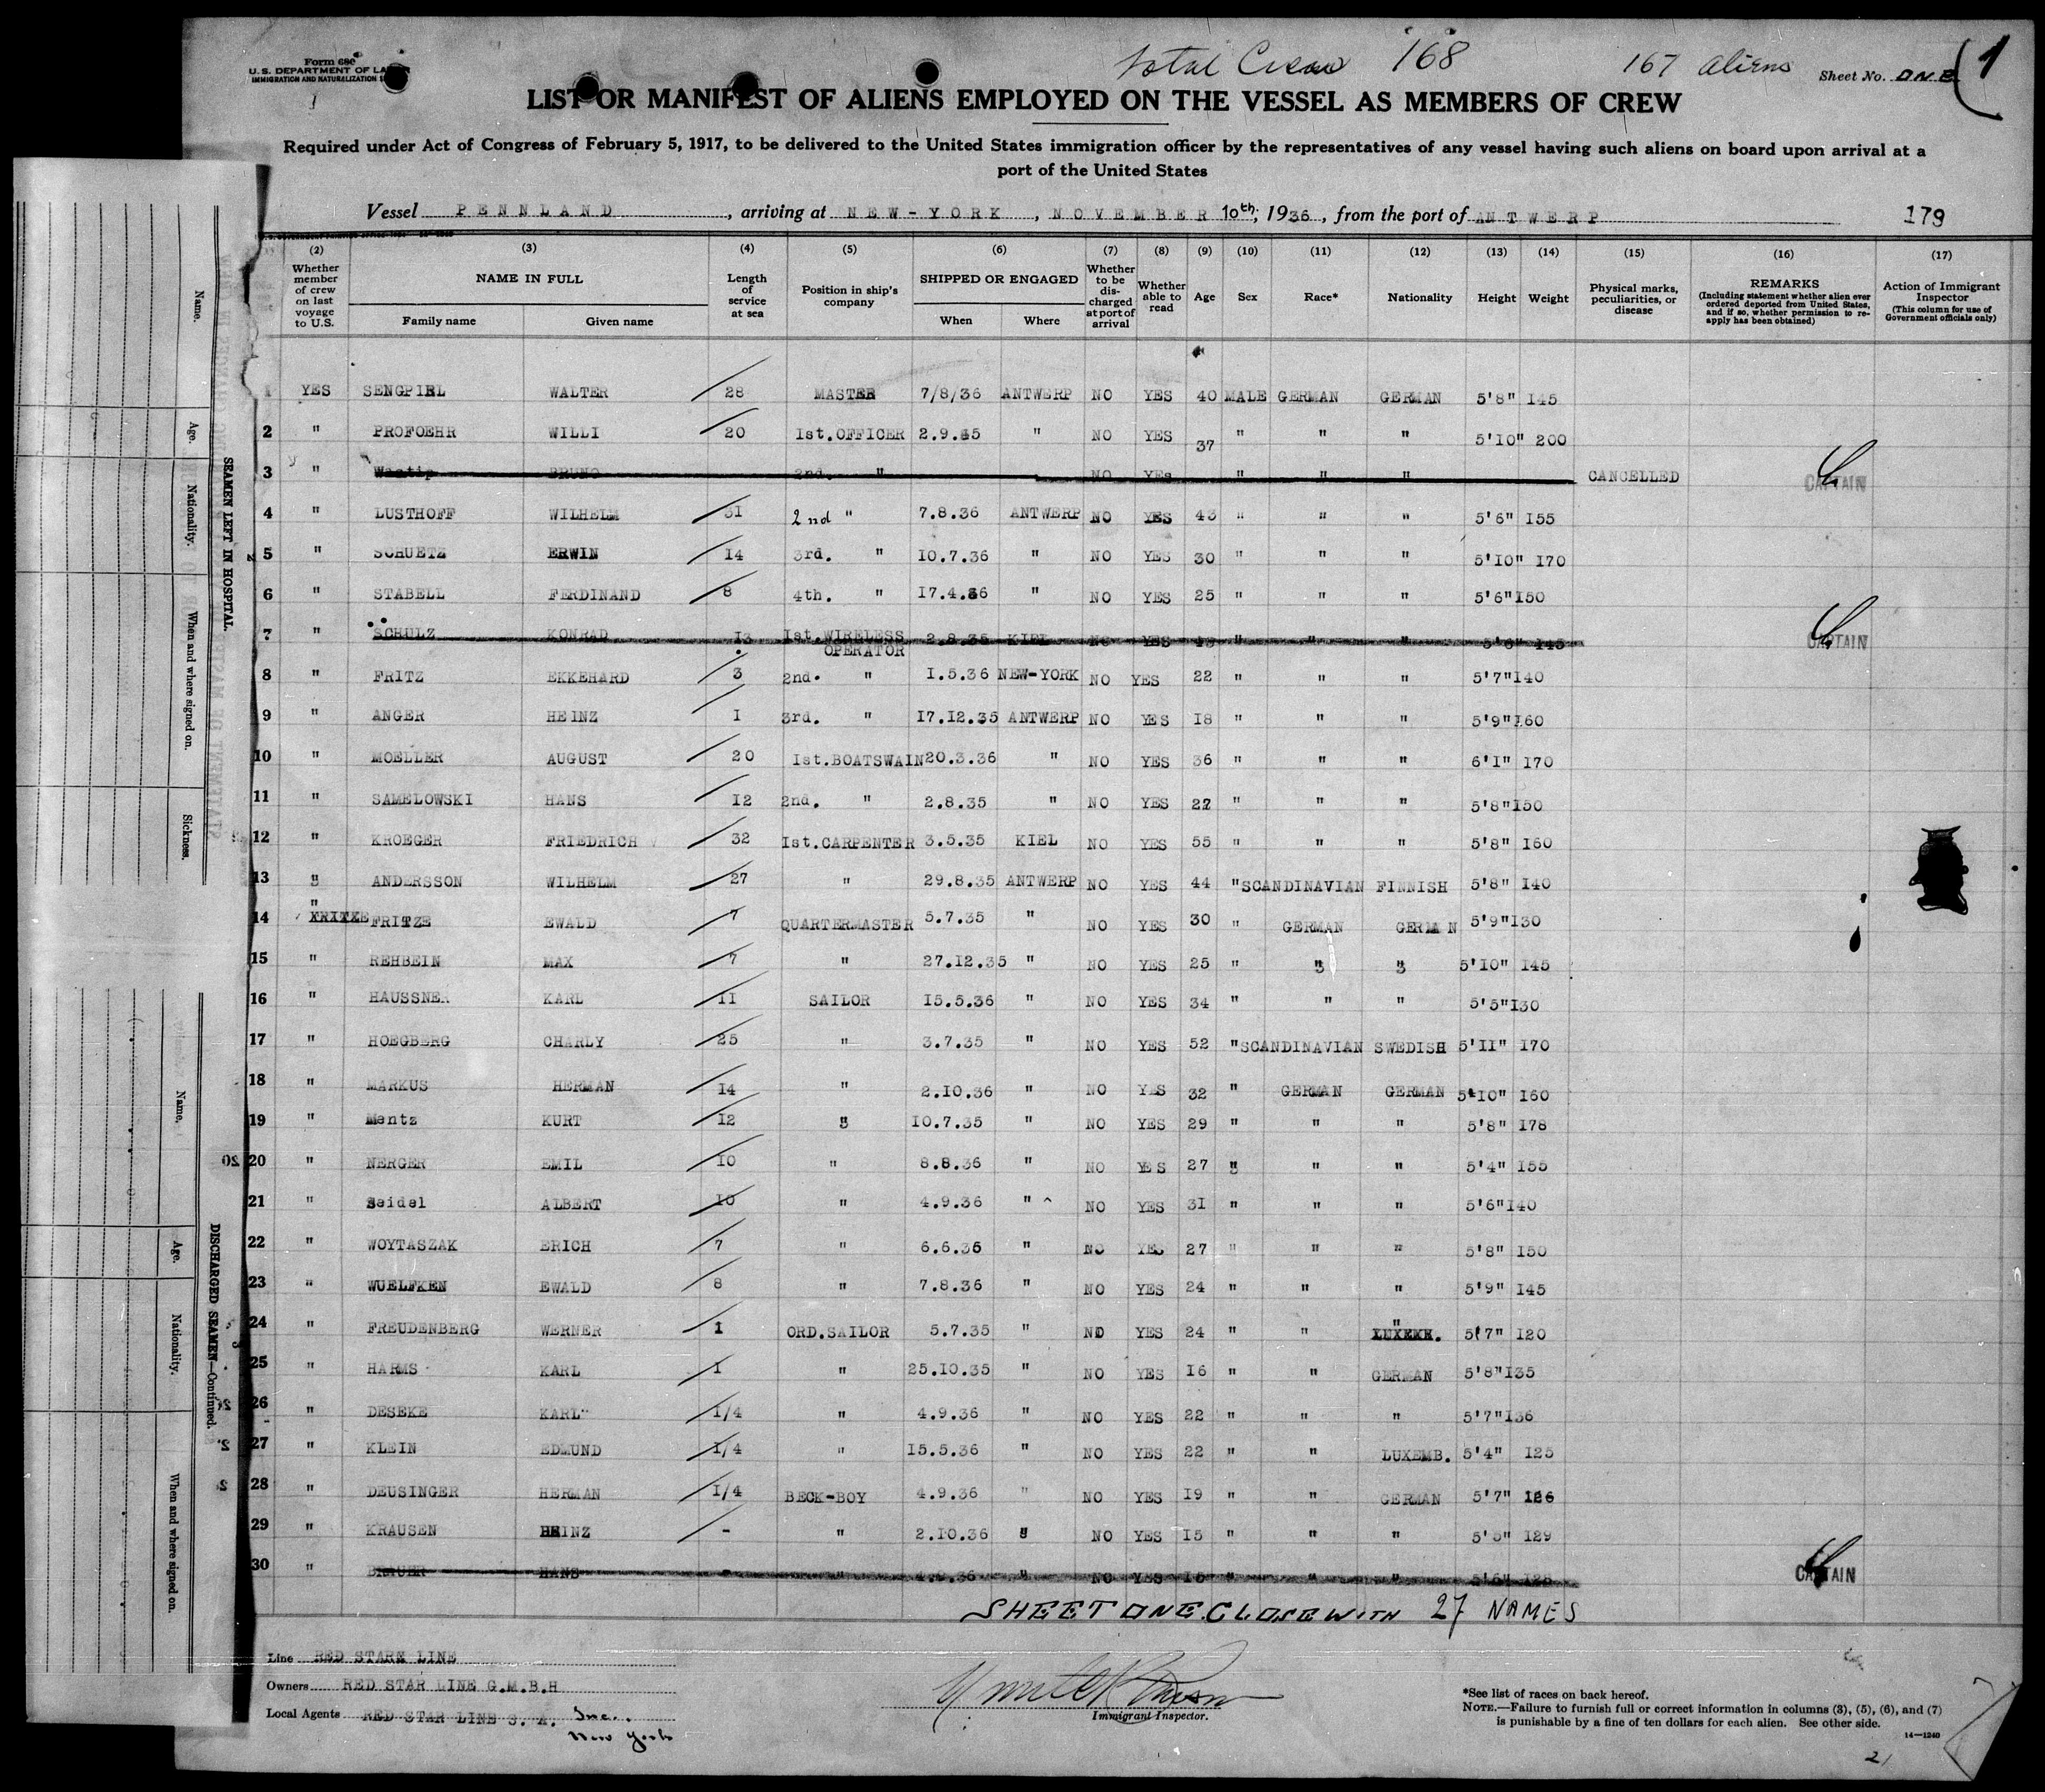 Total Crew 168 167 Aliens
Form 680
U.S. DEPARTMENT OF LABOR
IMMIGRATION AND NATURALIZATION
Sheet No. ONE 1
LIST OR MANIFEST OF ALIENS EMPLOYED ON THE VESSEL AS MEMBERS OF CREW
Required under Act of Congress of February 5, 1917, to be delivered to the United States immigration officer by the representatives of any vessel having such aliens on board upon arrival at a
port of the United States
Vessel PENNLAND, arriving at NEW-YORK, NOVEMBER 10th, 1936, from the port of ANTWERP 179
(2) (3) (4) (5) (6) (7) (8) (9) (10) (11) (12) (13) (14) (15) (16) (17)
Whether member of crew on last voyage to U.S.
NAME IN FULL
Family name Given name
Length of service at sea
Position in ship's company
SHIPPED OR ENGAGED
When Where
Whether to be discharged at port of arrival
Whether able to read
Age
Sex
Race*
Nationality
Height
Weight
Physical marks, peculiarities, or disease
REMARKS
(Including statement whether alien ever ordered deported from United States, and if so, whether permission to reapply has been obtained)
Action of Immigrant Inspector
(This column for use of Government officials only)
1 YES SENGPIEL WALTER 28 MASTER 7/8/36 ANTWERP NO YES 40 MALE GERMAN GERMAN 5'8" 145
2 " PROFOEHR WILLI 20 1st.OFFICER 2.9.35 " NO YES 37 " " " 5'10" 200
3 " BRUNO 2nd. " NO YES " " " CANCELLED CAPTAIN
4 " LUSTHOFF WILHELM 31 2nd " 7.8.36 ANTWERP NO YES 43 " " " 5'6" 155
5 " SCHUETZ ERWIN 14 3rd. " 10.7.36 " NO YES 30 " " " 5'10" 170
6 " STABELL FERDINAND 8 4th. " 17.4.36 " NO YES 25 " " " 5'6" 150
7 " SCHULZ KONRAD 13 1st.WIRELESS OPERATOR 2.8.35 KIEL NO YES 43 " " " 5'6" 145 CAPTAIN
8 " FRITZ EKKEHARD 3 2nd. " 1.5.36 NEW-YORK NO YES 22 " " " 5'7" 140
9 " ANGER HEINZ 1 3rd. " 17.12.35 ANTWERP NO YES 18 " " " 5'9" 160
10 " MOELLER AUGUST 20 1st.BOATSWAIN 20.3.36 " NO YES 36 " " " 6'1" 170
11 " SAMELOWSKI HANS 12 2nd. " 2.8.35 " NO YES 27 " " " 5'8" 150
12 " KROEGER FRIEDRICH 32 1st.CARPENTER 3.5.35 KIEL NO YES 55 " " " 5'8" 160
13 " ANDERSSON WILHELM 27 " 29.8.35 ANTWERP NO YES 44 " SCANDINAVIAN FINNISH 5'8" 140
14 " FRITZE EWALD 7 QUARTERMASTER 5.7.35 " NO YES 30 " GERMAN GERMAN 5'9" 130
15 " REHBEIN MAX 7 " 27.12.35 " NO YES 25 " " " 5'10" 145
16 " HAUSSNER KARL 11 SAILOR 15.5.36 " NO YES 34 " " " 5'5" 130
17 " HOEGBERG CHARLY 25 " 3.7.35 " NO YES 52 " SCANDINAVIAN SWEDISH 5'11" 170
18 " MARKUS HERMAN 14 " 2.10.36 " NO YES 32 " GERMAN GERMAN 5'10" 160
19 " Mentz KURT 12 " 10.7.35 " NO YES 29 " " " 5'8" 178
20 " NERGER EMIL 10 " 8.8.36 " NO YES 27 " " " 5'4" 155
21 " Seidel ALBERT 10 " 4.9.36 " NO YES 31 " " " 5'6" 140
22 " WOYTASZAK ERICH 7 " 6.6.36 " NO YES 27 " " " 5'8" 150
23 " WUELFKEN EWALD 8 " 7.8.36 " NO YES 24 " " " 5'9" 145
24 " FREUDENBERG WERNER 1 ORD.SAILOR 5.7.35 " NO YES 24 " " " 5'7" 120
25 " HARMS KARL 1 " 25.10.35 " NO YES 16 " " GERMAN 5'8" 135
26 " DESEKE KARL 1/4 " 4.9.36 " NO YES 22 " " " 5'7" 136
27 " KLEIN EDMUND 1/4 " 15.5.36 " NO YES 22 " " LUXEMB. 5'4" 125
28 " DEUSINGER HERMAN 1/4 BECK-BOY 4.9.36 " NO YES 19 " " GERMAN 5'7" 126
29 " KRAUSEN HEINZ - " 2.10.36 " NO YES 15 " " " 5'5" 129
30 " BRAUER HANS - " 4.9.36 " NO YES 15 " " " 5'6" 128 CAPTAIN
SHEET ONE CLOSE WITH 27 NAMES
Line RED STARE LINE
Owners RED STAR LINE G.M.B.H
Local Agents RED STAR LINE S. A. Inc.
New York
Immigrant Inspector.
*See list of races on back hereof.
NOTE.—Failure to furnish full or correct information in columns (3), (5), (6), and (7)
is punishable by a fine of ten dollars for each alien. See other side.
14—1240
21
SEAMEN LEFT IN HOSPITAL.
Name. Age. Nationality. When and where signed on. Sickness.
DISCHARGED SEAMEN—Continued.
Name. Age. Nationality. When and where signed on.